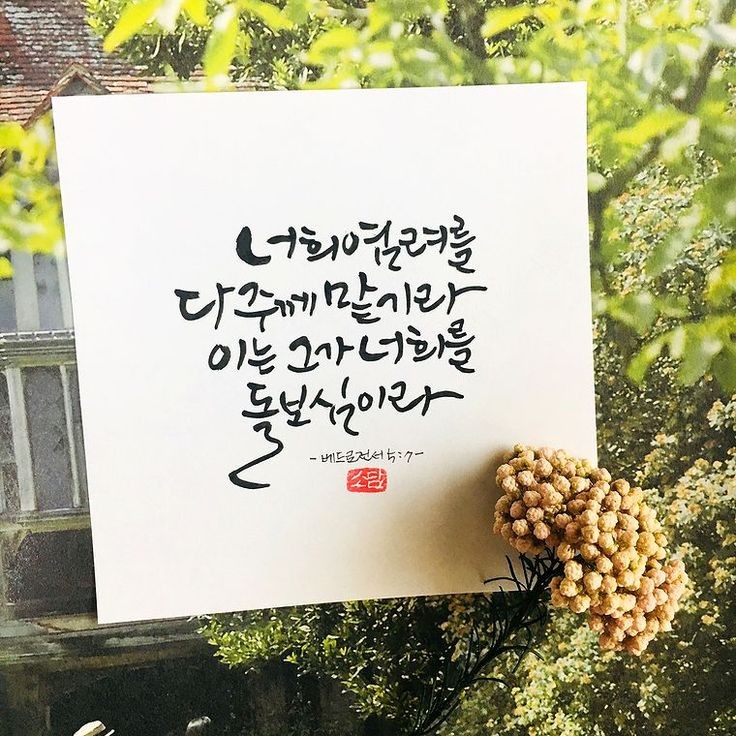 너희 염려를
다 주께 맡기라
이는 그가 너희를
돌보심이라
- 베드로전서 5:7 -
소담